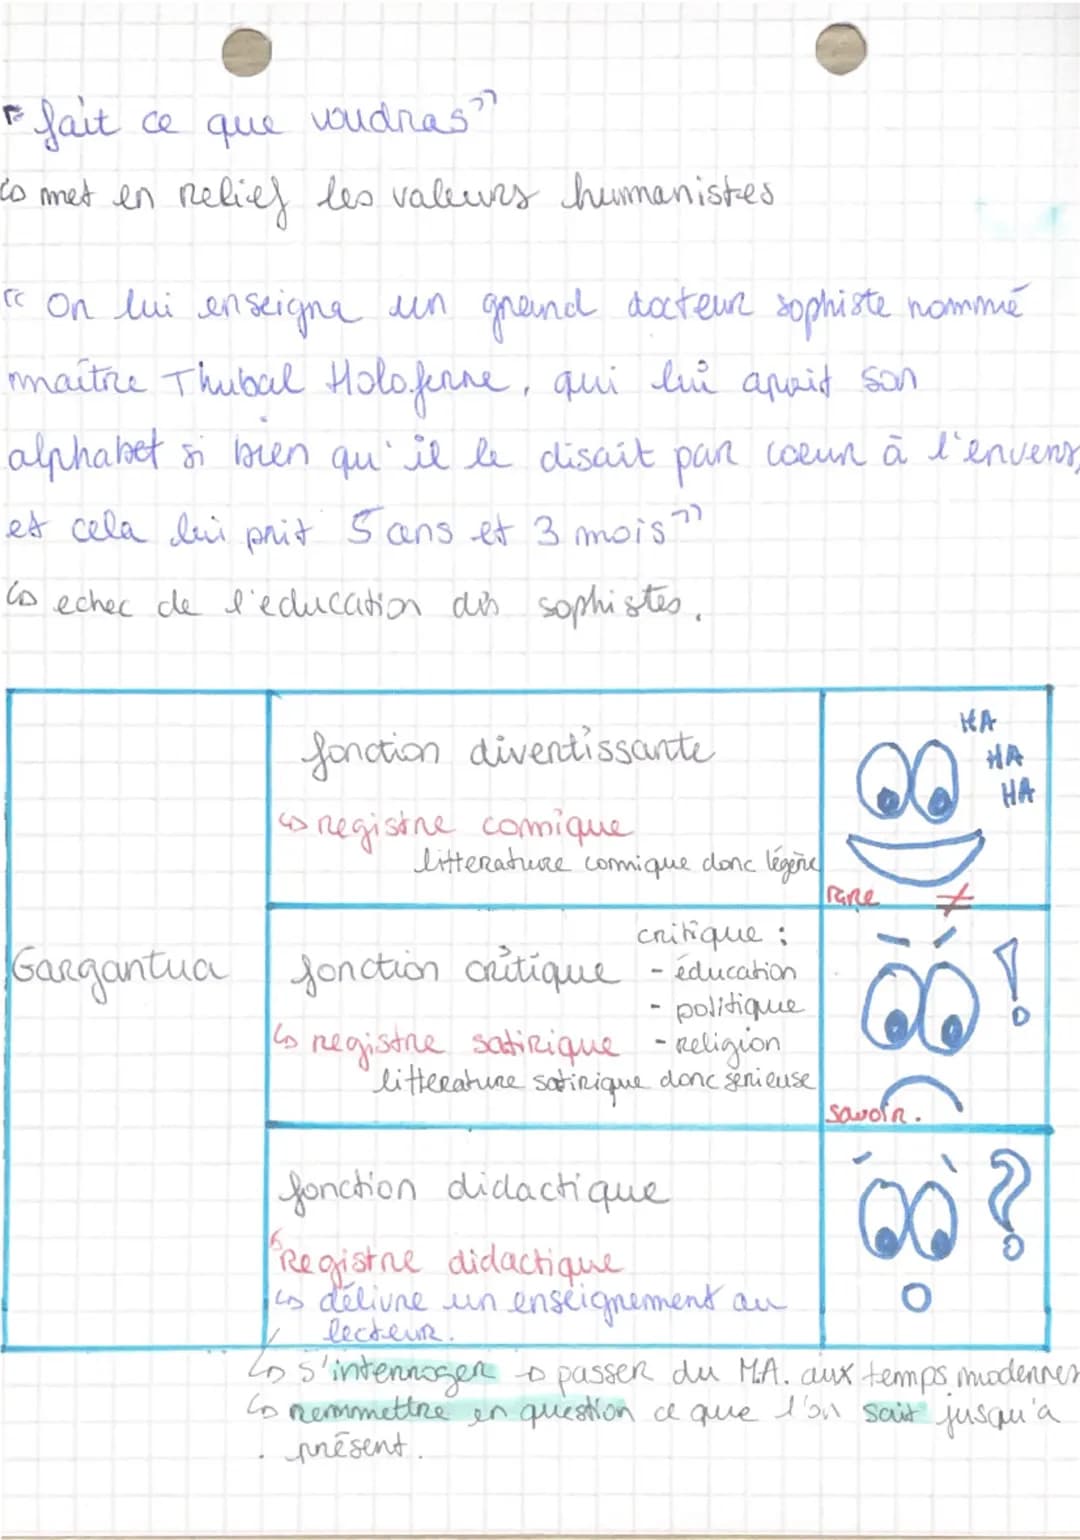 " fait ce que voudras"
↳ met en relief les valeurs humanistes
" On lui enseigna un grand docteur sophiste nommé
maître Thubal Holoferne, qui lui aprit son
alphabet si bien qu'il le disait par coeur à l'envers,
et cela lui prit 5 ans et 3 mois"
↳ echec de l'education des sophistes.
fonction divertissante
↳ registre comique
litterature comique donc légère
HA
HA
HA
rire ≠
Gargantua
fonction critique
critique :
- éducation
- politique
- religion
↳ registre satirique
litterature satirique donc serieuse
!
savoir.
fonction didactique
↳ Registre didactique
↳ délivre un enseignement au
lecteur.
?
↳ s'interroger → passer du M.A. aux temps modernes
↳ remmettre en question ce que l'on sait jusqu'a
présent.